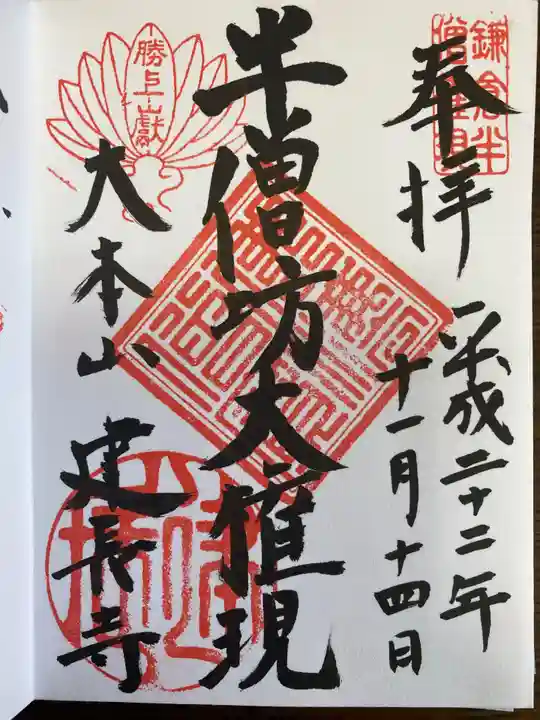 奉拝
平成二十二年
十一月十四日
半僧坊大権現
勝上嶽
大本山 建長寺